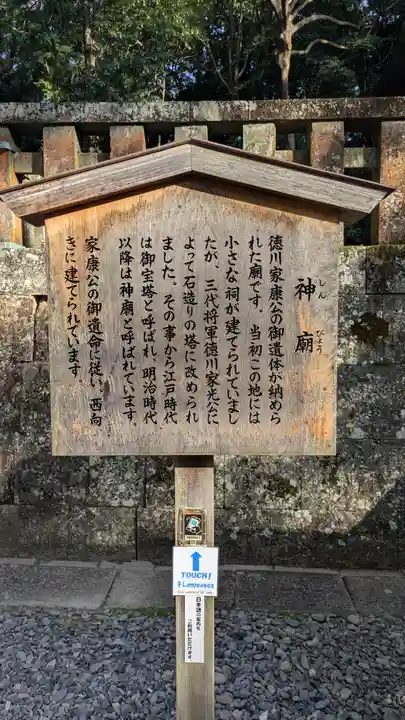 神廟
しんびょう
徳川家康公の御遺体が納めら
れた廟です。当初この地には
小さな祠が建てられていまし
たが、三代将軍徳川家光公に
よって石造りの塔に改められ
ました。その事から江戸時代
は御宝塔と呼ばれ、明治時代
以降は神廟と呼ばれています。
家康公の御遺命に従い、西向
きに建てられています。
TOUCH!
日本語の案内も
ご利用いただけます。